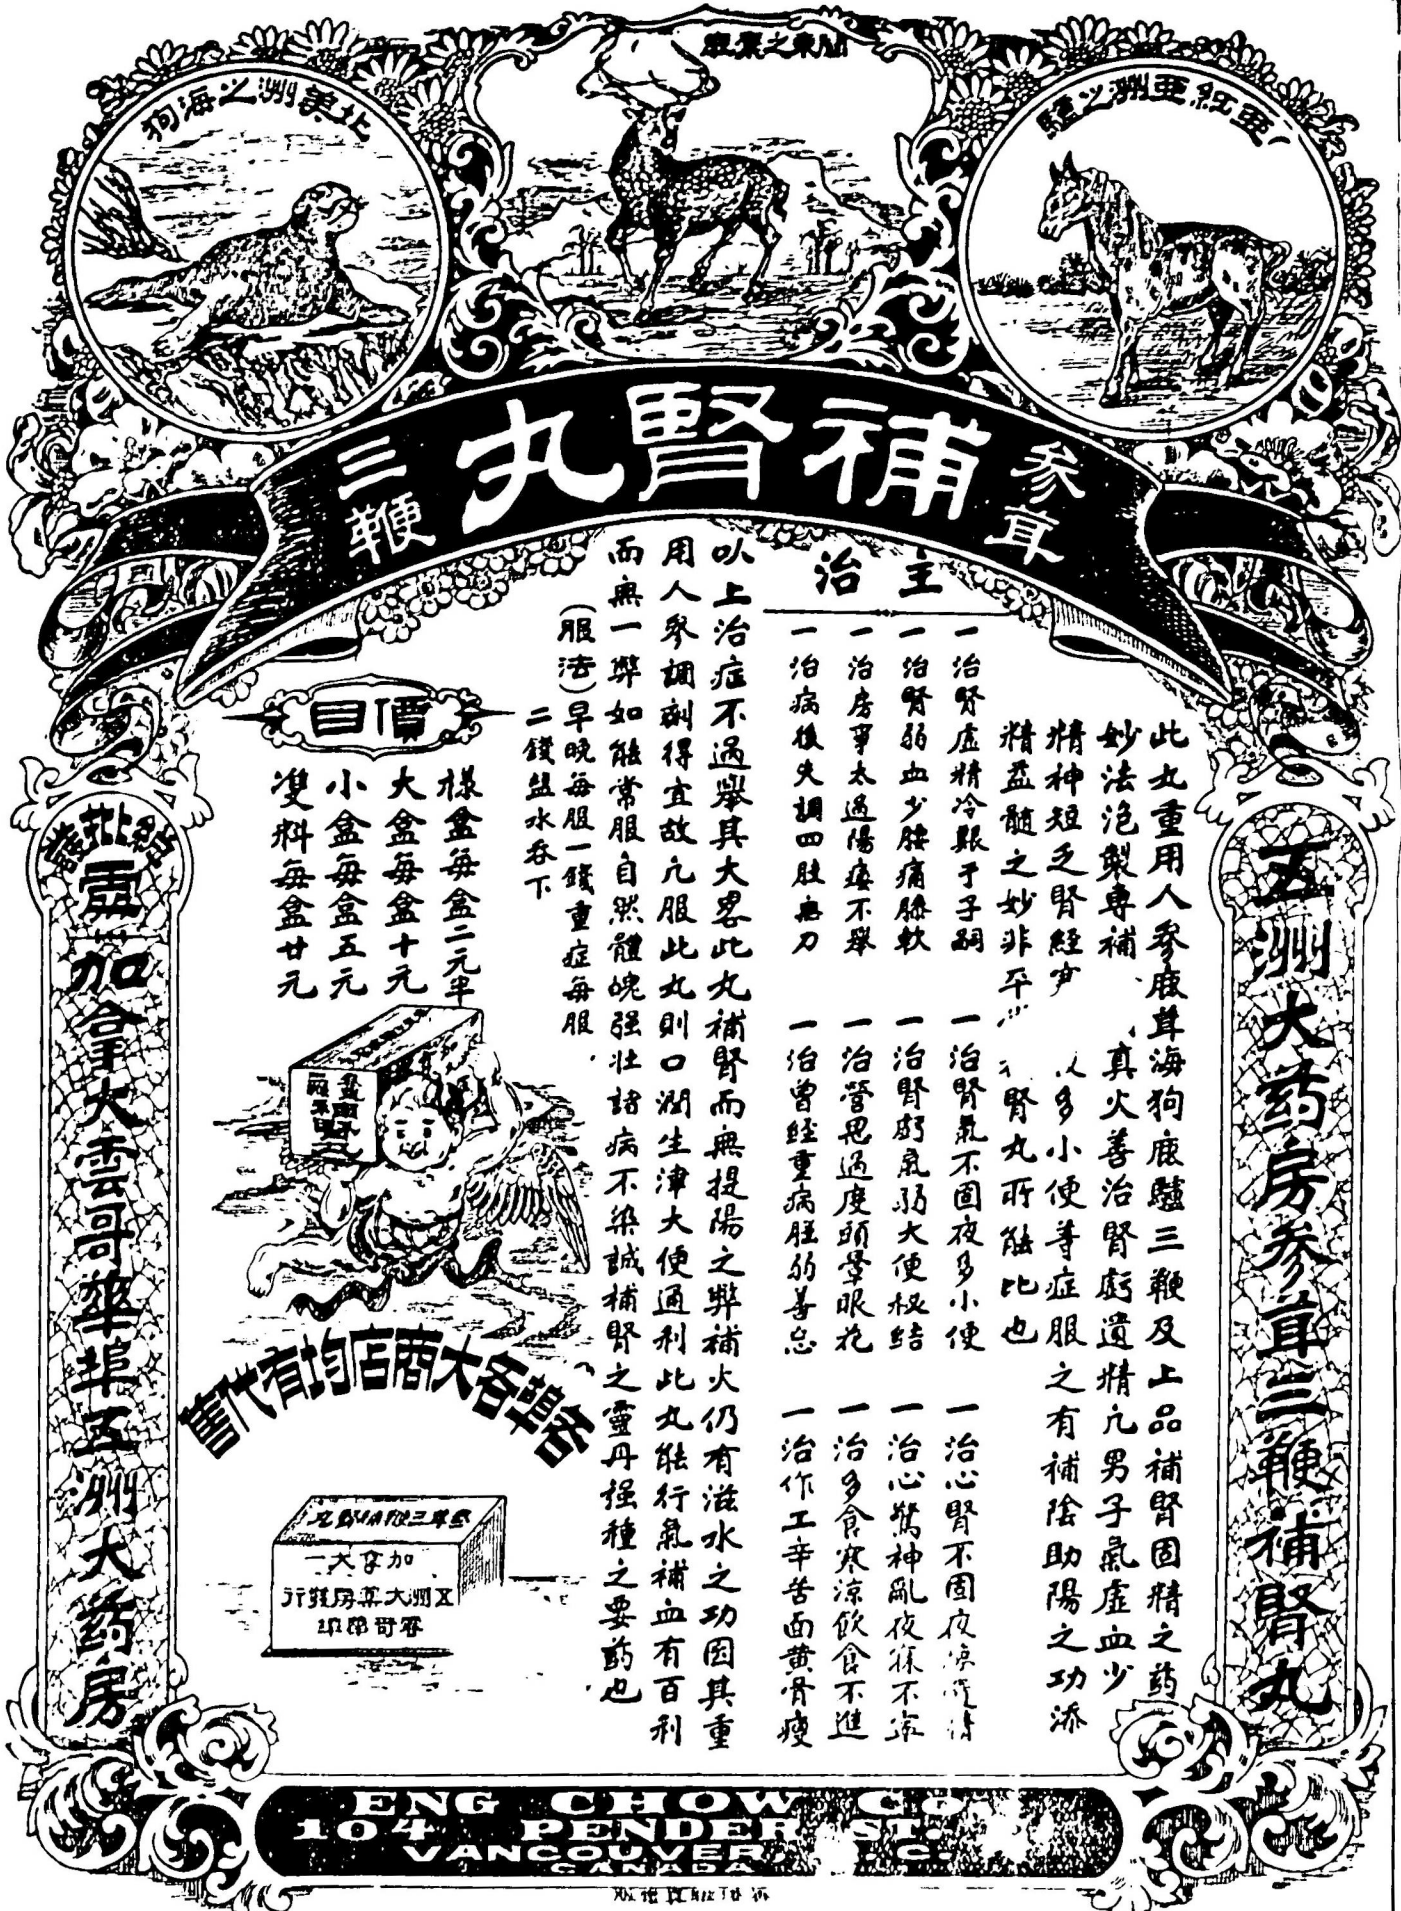 北美洲之海狗
關東之鹿
亞紅亞洲之驢
參茸
補腎丸
三鞭
五洲大药房參茸三鞭補腎丸
此丸重用人參鹿茸海狗鹿驢三鞭及上品補腎固精之药
妙法泡製專補
真火善治腎虧遺精凢男子氣虛血少
精神短乏腎經
多小便等症服之有補陰助陽之功添
精益髓之妙非平
腎丸所能比也
主治
一治腎虛精冷艱于子嗣
一治腎氣不固夜多小便
一治心腎不固夜
一治腎弱血少腰痛膝軟
一治腎虧氣弱大便秘結
一治心驚神亂夜寐不
一治房事太過陽痿不舉
一治營思過度頭暈眼花
一治多食寒涼飲食不進
一治病後失調四肢無力
一治曾經重病胆弱善忘
一治作工辛苦面黄骨瘦
以上治症不過舉其大畧此丸補腎而無提陽之弊補火仍有滋水之功因其重
用人參調劑得宜故凢服此丸則口潤生津大便通利此丸能行氣補血有百利
而無一弊如能常服自然體魄强壮諸病不染誠補腎之靈丹强種之要药也
(服法)早晚每服一錢重症每服
二錢盐水吞下
價目
樣盒每盒二元半
大盒每盒十元
小盒每盒五元
雙料每盒廿元
各埠各大商店均有代售
加拿大
五洲大药房發行
總批發處
加拿大雲哥華埠五洲大药房
ENG CHOW Co.
104 PENDER ST.
VANCOUVER, B.C.
CANADA